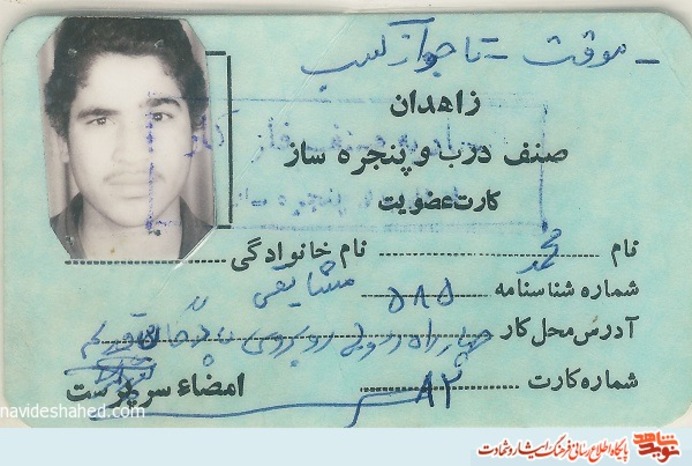 موقت - تا جواز کسب
زاهدان
صنف درب و پنجره ساز
کارت عضویت
نام محمد نام خانوادگی مشایخی
شماره شناسنامه ۵۸۵
آدرس محل کار چهار راه رسولی روبروی
شماره کارت ۸۲ امضاء سرپرست
navideshahed.com
نوید شاهد پایگاه اطلاع رسانی فرهنگ ایثار و شهادت